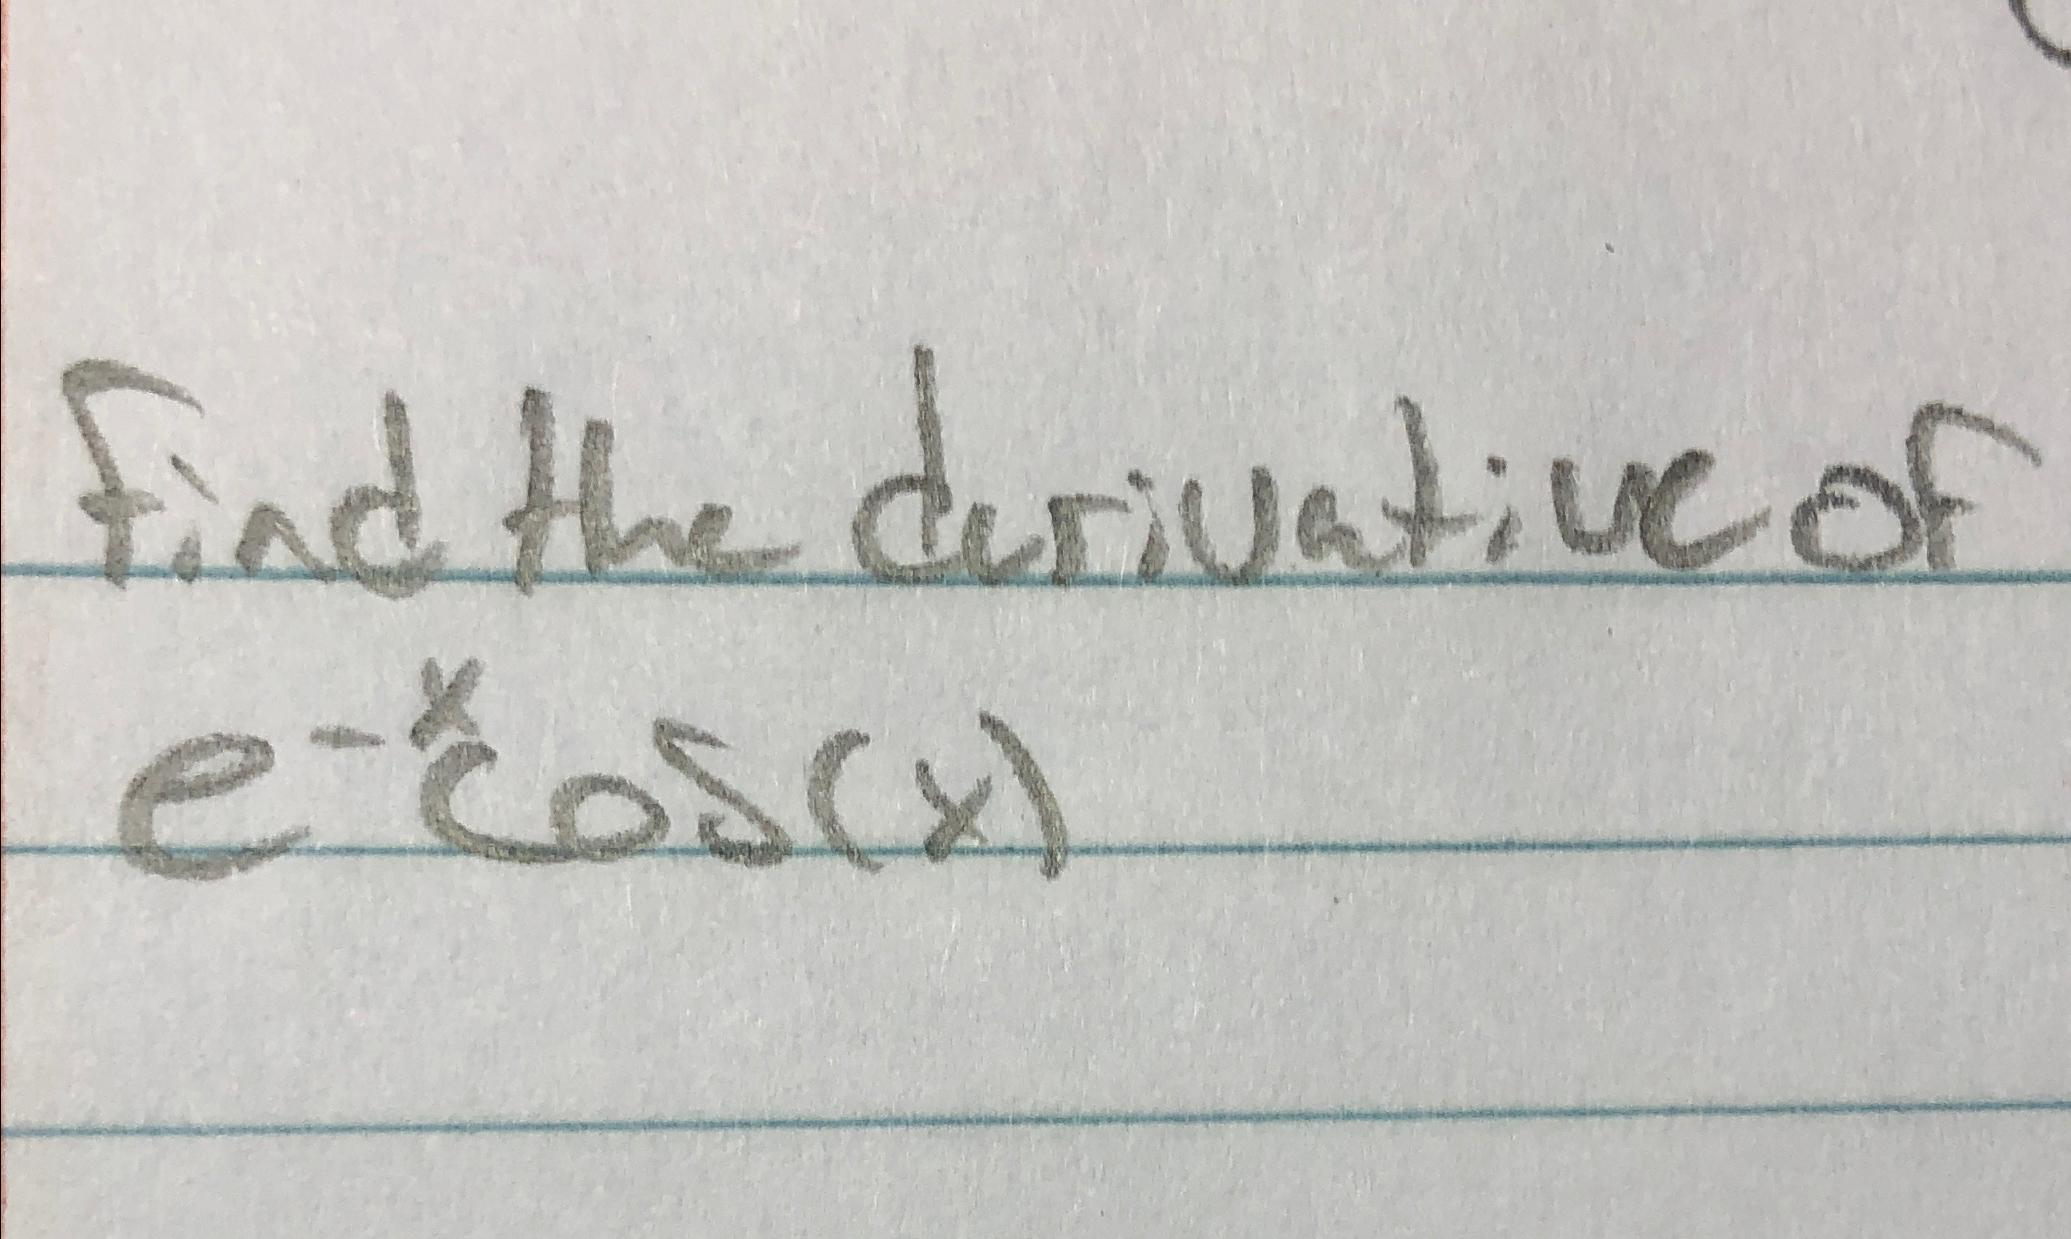 Find the derivative of
e^{-x}cos(x)